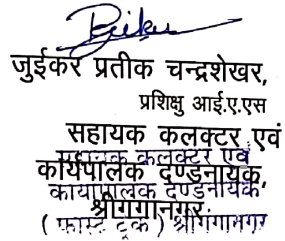 जुईकर प्रतीक चन्द्रशेखर,
प्रशिक्षु आई.ए.एस
सहायक कलक्टर एवं
सहायक कलक्टर एवं
कार्यपालक दण्डनायक,
कार्यपालक दण्डनायक
श्रीगंगानगर.
( फास्ट ट्रैक ) श्रीगंगानगर